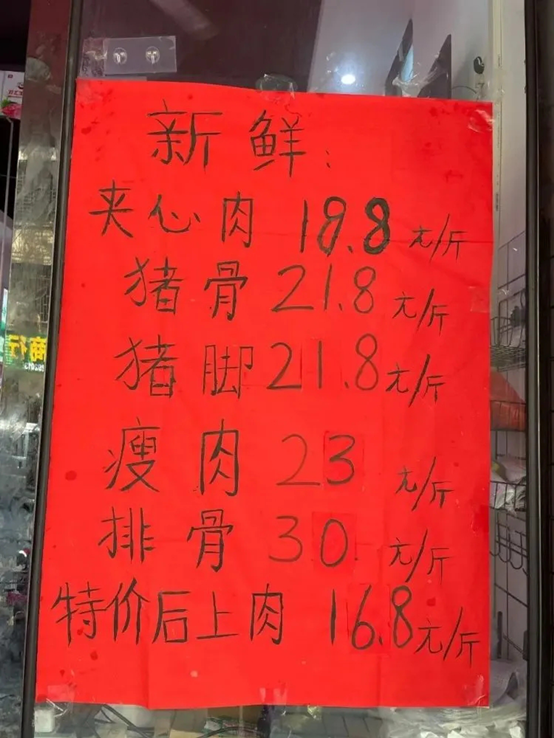 新鲜：
夹心肉 19.8元/斤
猪骨 21.8元/斤
猪脚 21.8元/斤
瘦肉 23元/斤
排骨 30元/斤
特价后上肉 16.8元/斤
商行